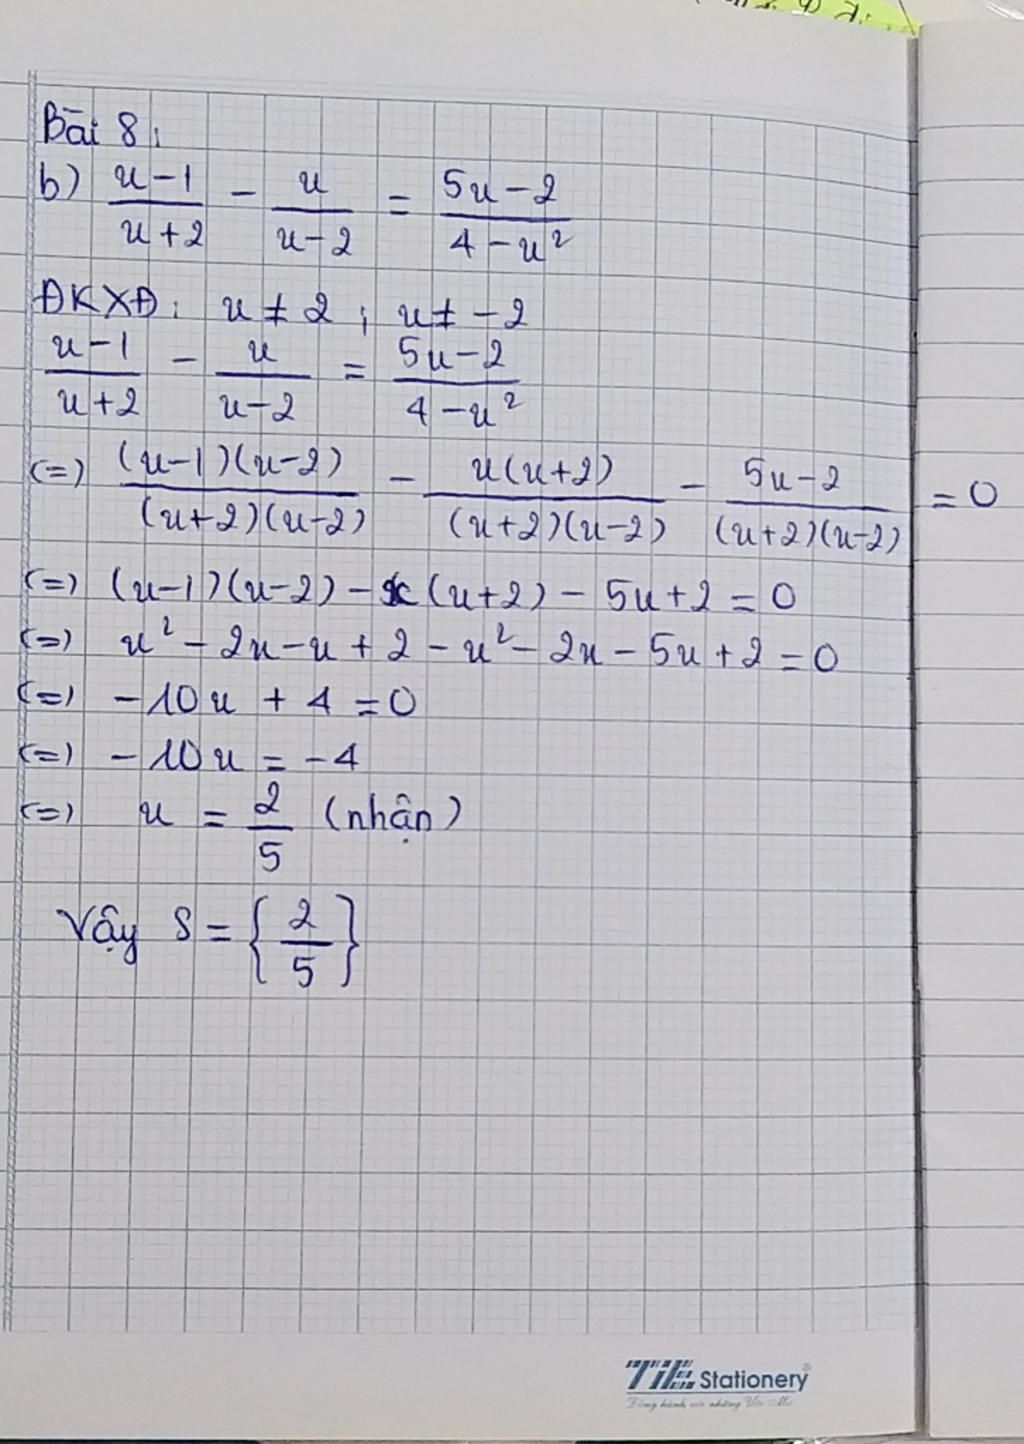 Bài 8:
b) \frac{x-1}{x+2} - \frac{x}{x-2} = \frac{5x-2}{4-x^2}
ĐKXĐ: x ≠ 2 ; x ≠ -2
\frac{x-1}{x+2} - \frac{x}{x-2} = \frac{5x-2}{4-x^2}
(=) \frac{(x-1)(x-2)}{(x+2)(x-2)} - \frac{x(x+2)}{(x+2)(x-2)} - \frac{5x-2}{(x+2)(x-2)} = 0
(=) (x-1)(x-2) - x(x+2) - 5x+2 = 0
(=) x^2 - 2x - x + 2 - x^2 - 2x - 5x + 2 = 0
(=) -10x + 4 = 0
(=) -10x = -4
(=) x = \frac{2}{5} (nhận)
Vậy S = {\frac{2}{5}}
TiE Stationery